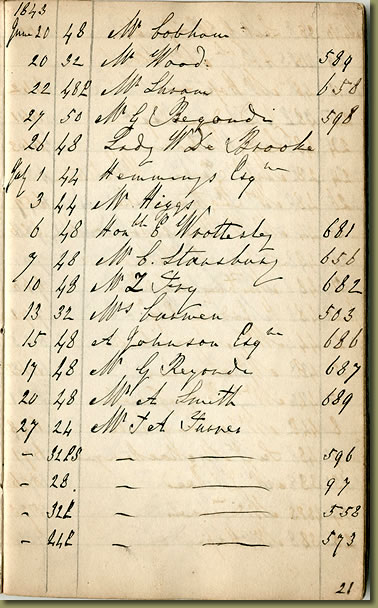 1843
June 20 48 Mr Cobham
20 32 Mr Wood. 589
22 48L Mr 658
27 50 Mr G Regondi 598
26 48 Lady W De Brooke
July 1 44 Hemmings Esqre
3 44 Mr Higgs
6 48 Honble E Wrottesley 681
7 48 Mr C. Stansbury 656
10 48 Mr Z Fry 682
13 32 Mrs Curwen 503
15 48 A Johnson Esqre 686
17 48 Mr G Regondi 687
20 48 Mr A Smith 689
27 24 Mr T A Turner
- 32LS - — 596
- 28. - — 97
- 32L - — 558
- 24L - — 573
21